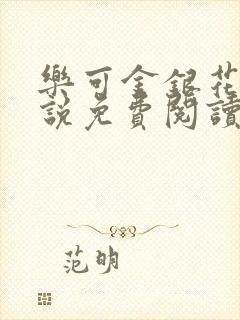 樂可金銀花
說免費閱讀
范明